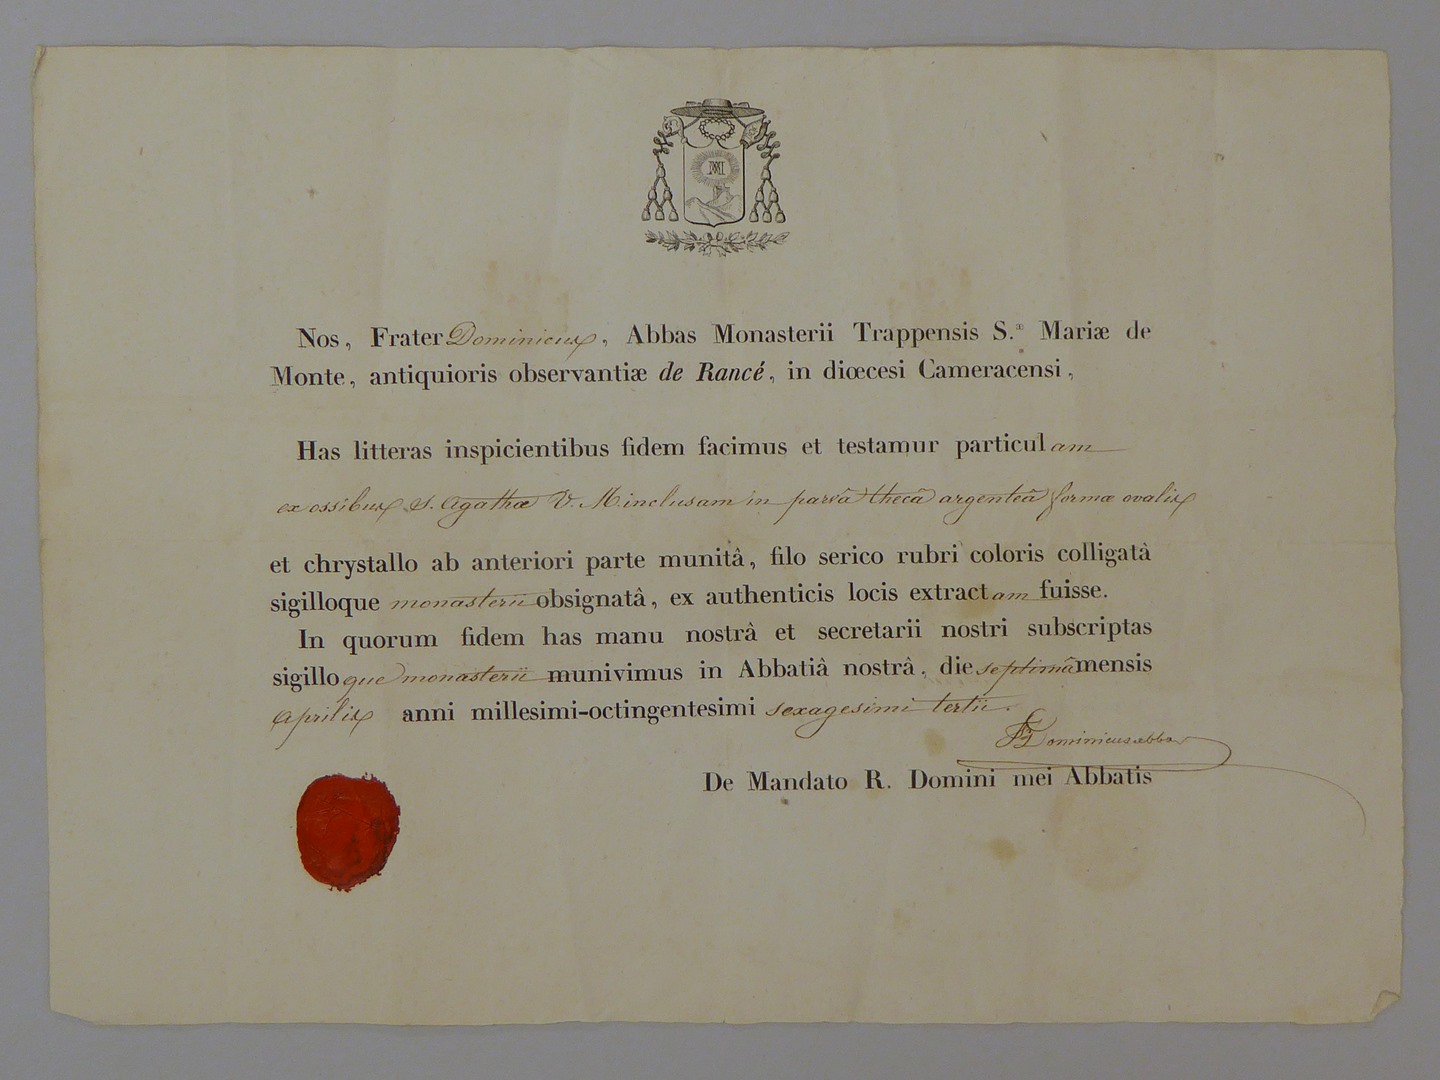 Nos, Frater Dominicus, Abbas Monasterii Trappensis S.æ Mariæ de
Monte, antiquioris observantiæ de Rancé, in diœcesi Cameracensi,
Has litteras inspicientibus fidem facimus et testamur particulam
ex ossibus S. Agathæ V. M. inclusam in parvâ thecâ argenteâ formæ ovalis
et chrystallo ab anteriori parte munitâ, filo serico rubri coloris colligatâ
sigilloque monasterii obsignatâ, ex authenticis locis extractam fuisse.
In quorum fidem has manu nostrâ et secretarii nostri subscriptas
sigilloque monasterii munivimus in Abbatiâ nostrâ, die septimâ mensis
Aprilis anni millesimi-octingentesimi sexagesimi tertii.
F Dominicus abbas
De Mandato R. Domini mei Abbatis